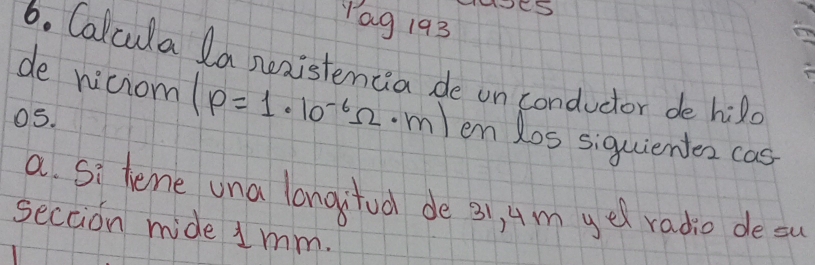 Pag 193
6. Calcula la resistencia de un conductor de hilo
de nicrom (ρ = 1 · 10⁻⁶ Ω · m) en los siguientes cas
os.
a. Si tiene una longitud de 31,4 m y el radio de su
sección mide 1 mm.